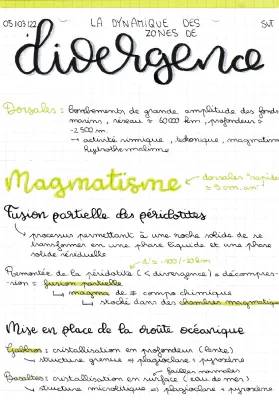 05/03/22 LA DYNAMIQUE DES SVT
ZONES DE
divergence
Dorsales : bombements de grande amplitude des fonds
marins, réseau ≈ 60 000 km, profondeur ≈
-2 500 m.
→ activité sismique, tectonique, magmatisme
hydrothermalisme
Magmatisme
dorsales rapides
≈ 5 cm.an
Fusion partielle des péridotites
processus permettant à une roche solide de se
transformer en une phase liquide et une phase
solide résiduelle
-100 / -20 km
Remontée de la péridotite (< divergence) = décompres-
sion = fusion partielle
magma de ≠ compo chimique
stocké dans des chambres magmatiques
Mise en place de la croûte océanique
Gabbros : cristallisation en profondeur (lente)
structure grenue → plagioclase + pyroxène
failles normales
Basaltes : cristallisation en surface (eau de mer)
structure microlitique → plagioclase + pyroxène